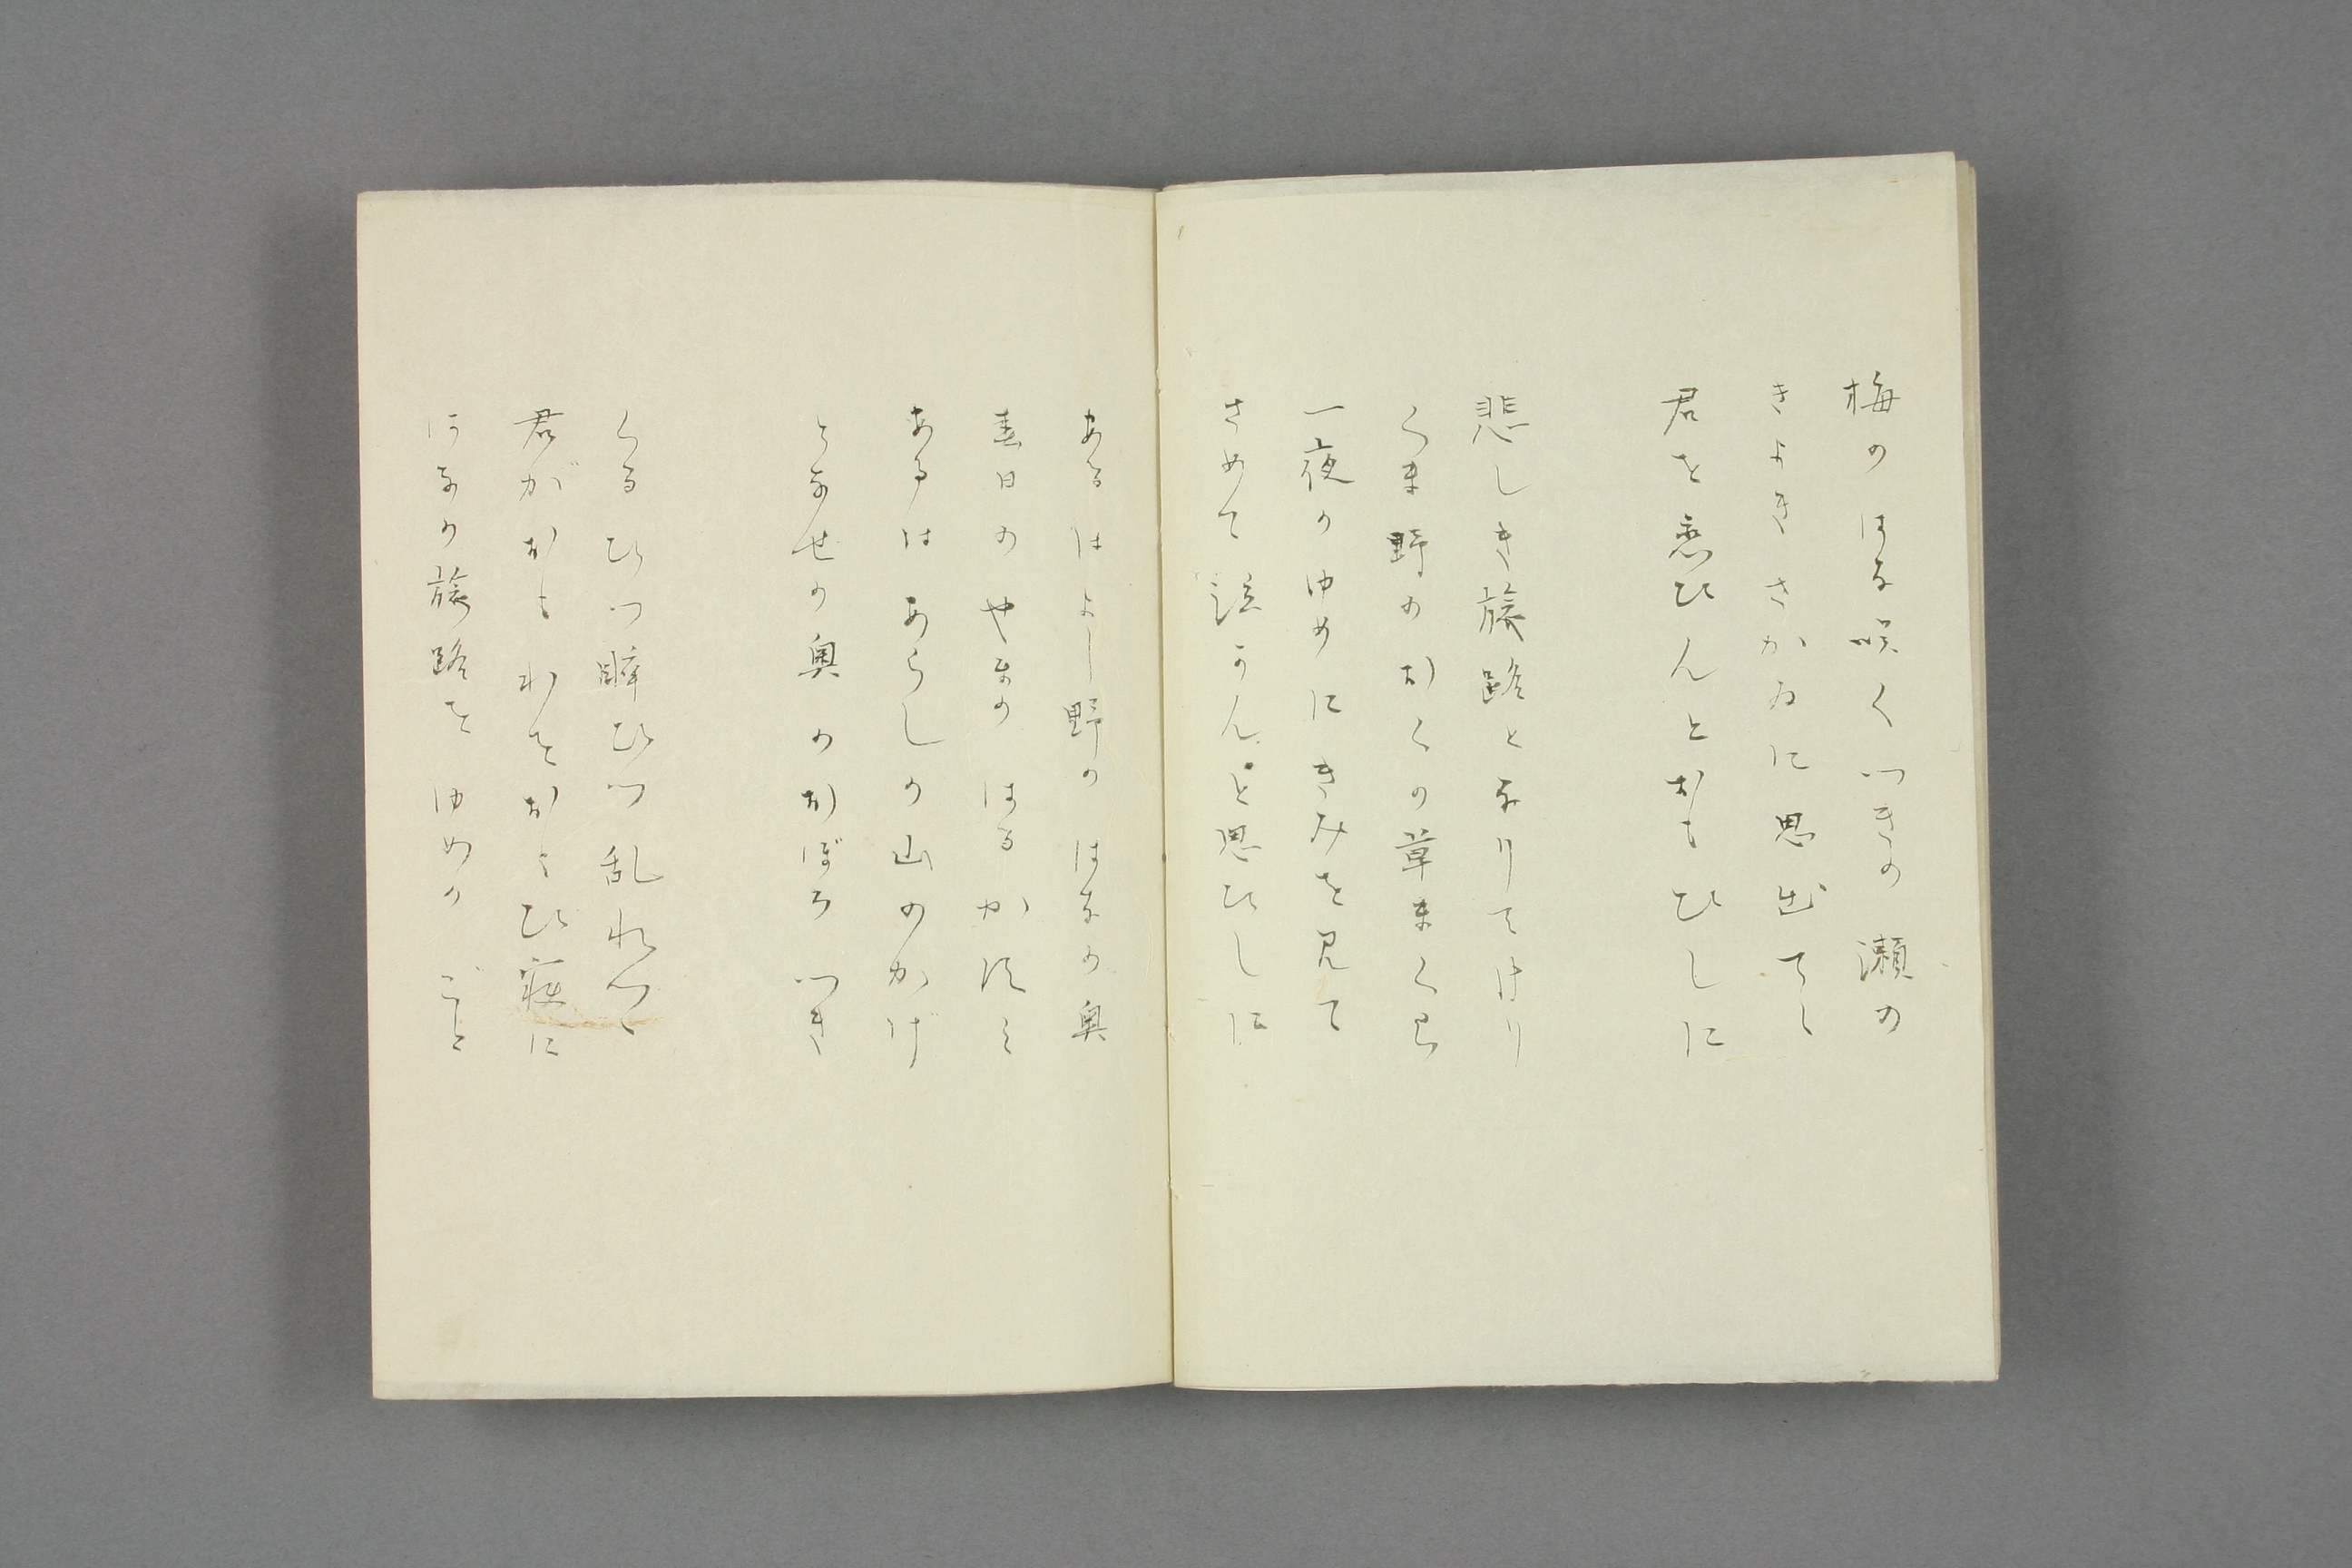 梅のはな咲くつきの瀬の
きよきさかゐに思出てし
君を恋ひんとおもひしに
悲しき旅路となりてけり
くま野のおくの草まくら
一夜のゆめにきみを見て
さめて泣かんと思ひしに
あるはよし野のはなの奥
春日のやまのはるかすみ
あるはあらしの山のかげ
となせの奥のおぼろつき
くるひつ酔ひつ乱れつゝ
君がおもわをおもひ寝に
はなの旅路をゆめのごと